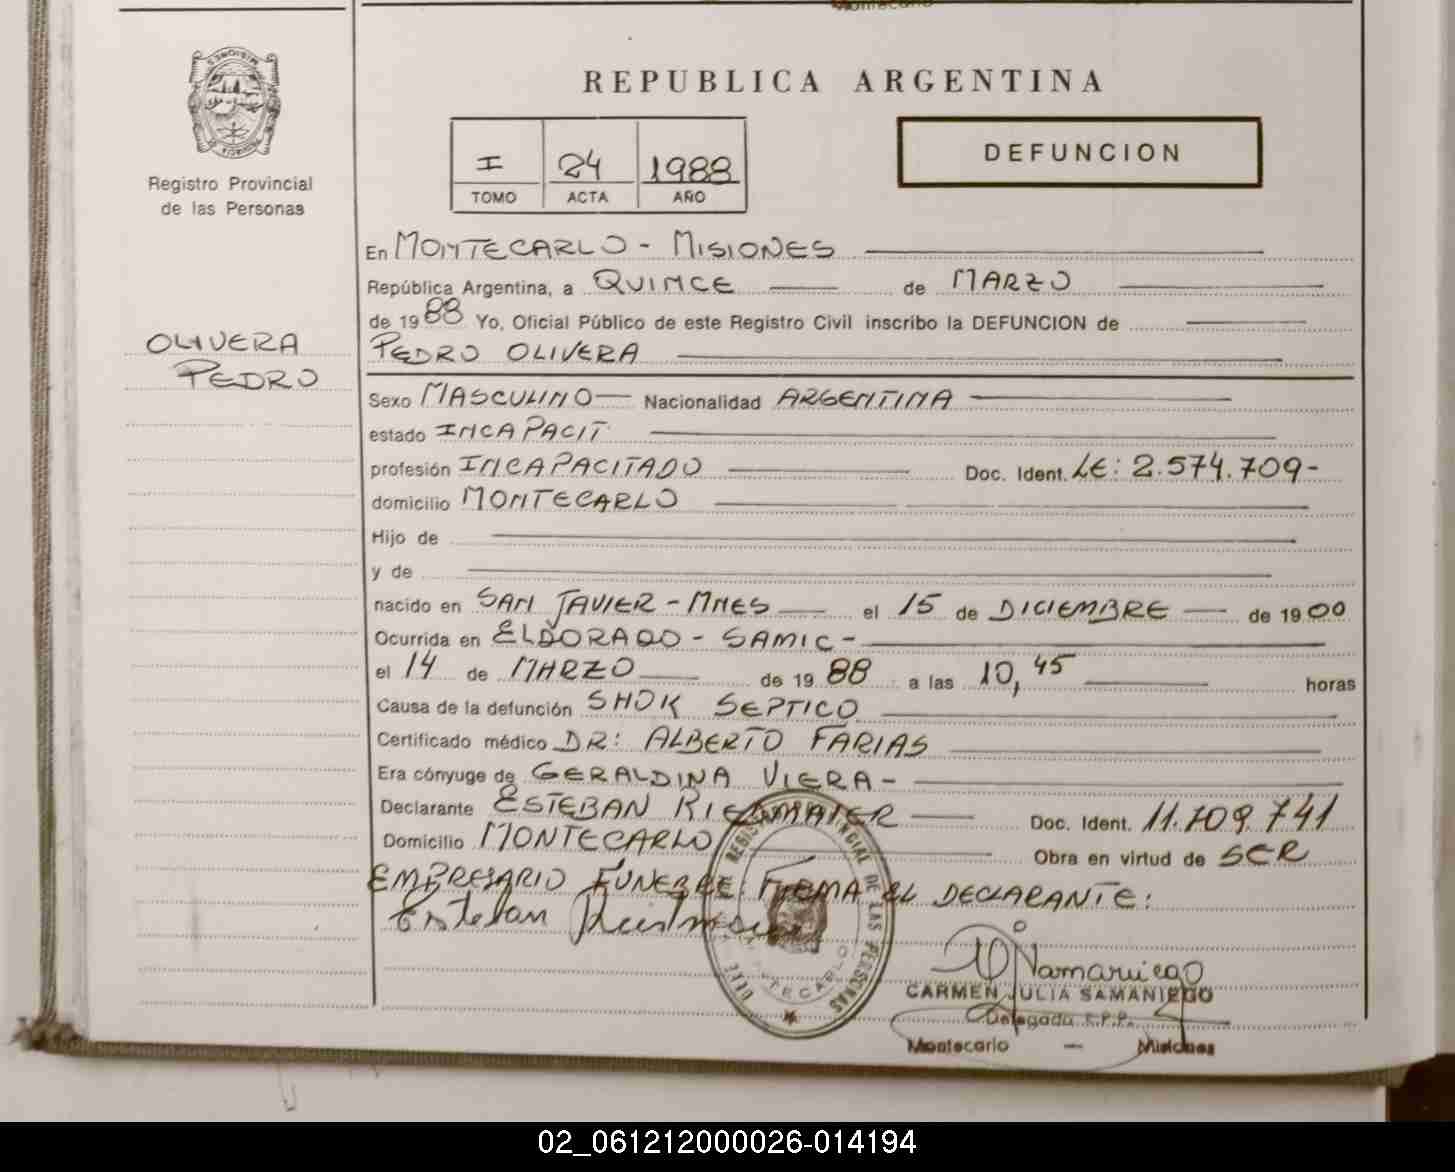 REPUBLICA ARGENTINA
I 24 1988
TOMO ACTA AÑO
DEFUNCION
Registro Provincial
de las Personas
OLIVERA
PEDRO
En MONTECARLO - MISIONES
República Argentina, a QUINCE de MARZO
de 1988 Yo, Oficial Público de este Registro Civil inscribo la DEFUNCION de
PEDRO OLIVERA
Sexo MASCULINO Nacionalidad ARGENTINA
estado INCAPACIT
profesión INCAPACITADO Doc. Ident. LE: 2.574.709-
domicilio MONTECARLO
Hijo de
y de
nacido en SAN JAVIER - MNES el 15 de DICIEMBRE de 1900
Ocurrida en ELDORADO - SAMIC -
el 14 de MARZO de 1988 a las 10,45 horas
Causa de la defunción SHOK SEPTICO
Certificado médico DR: ALBERTO FARIAS
Era cónyuge de GERALDINA VIERA -
Declarante ESTEBAN Doc. Ident. 11.709.741
Domicilio MONTECARLO Obra en virtud de SER
EMPRESARIO FUNEBRE: FIRMA EL DECLARANTE:
Esteban
REGISTRO PROVINCIAL DE LAS PERSONAS
MONTECARLO
Samaniego
CARMEN JULIA SAMANIEGO
Delegada R.P.P.
Montecarlo — Misiones
02_061212000026-014194